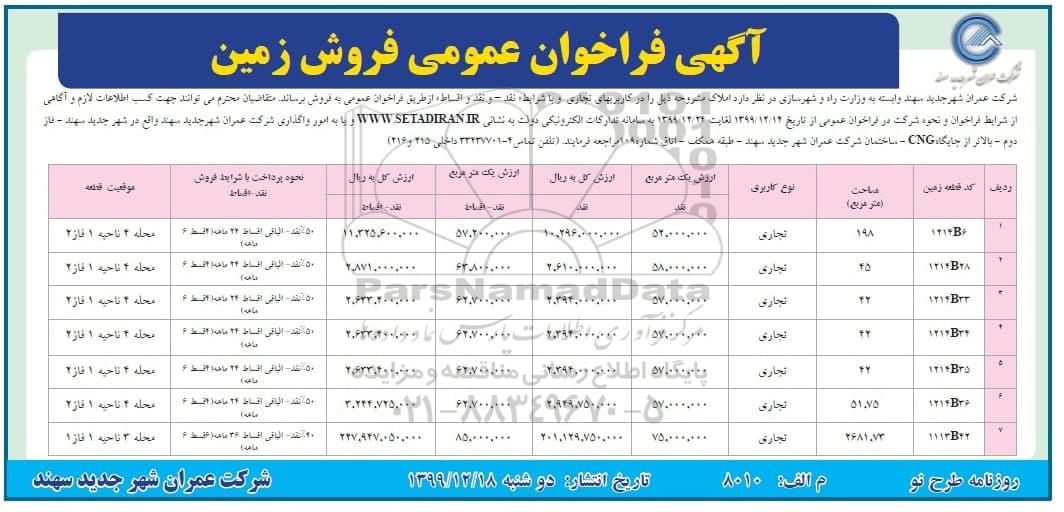 آگهی فراخوان عمومی فروش زمین
شرکت عمران شهر جدید سهند
شرکت عمران شهرجدید سهند وابسته به وزارت راه و شهرسازی در نظر دارد املاک مشروحه ذیل را در کاربریهای تجاری و با شرایط« نقد - و نقد و اقساط» ازطریق فراخوان عمومی به فروش برساند. متقاضیان محترم می توانند جهت کسب اطلاعات لازم و آگاهی
از شرایط فراخوان و نحوه شرکت در فراخوان عمومی از تاریخ ۱۳۹۹/۱۲/۱۴ لغایت ۱۳۹۹/۱۲/۲۴ به سامانه تدارکات الکترونیکی دولت به نشانی WWW.SETADIRAN.IR و یا به امور واگذاری شرکت عمران شهرجدید سهند واقع در شهر جدید سهند - فاز
دوم - بالاتر از جایگاه CNG - ساختمان شرکت عمران شهر جدید سهند - طبقه همکف - اتاق شماره۱۰۹مراجعه فرمایند. (تلفن تماس۴-۳۳۴۳۷۷۰۱ داخلی ۲۱۵ و۲۱۶)
ردیف کد قطعه زمین مساحت (متر مربع) نوع کاربری ارزش یک متر مربع نقد ارزش کل به ریال نقد ارزش یک متر مربع نقد-اقساط ارزش کل به ریال نقد- اقساط نحوه پرداخت با شرایط فروش نقد-اقساط موقعیت قطعه
۱ ۱۲۱۴B۶ ۱۹۸ تجاری ۵۲,۰۰۰,۰۰۰ ۱۰,۲۹۶,۰۰۰,۰۰۰ ۵۷,۲۰۰,۰۰۰ ۱۱,۳۲۵,۶۰۰,۰۰۰ ۵۰٪نقد- الباقی اقساط ۲۴ ماهه(۴قسط ۶ ماهه) محله ۴ ناحیه ۱ فاز۲
۲ ۱۲۱۴B۲۸ ۴۵ تجاری ۵۸,۰۰۰,۰۰۰ ۲,۶۱۰,۰۰۰,۰۰۰ ۶۳,۸۰۰,۰۰۰ ۲,۸۷۱,۰۰۰,۰۰۰ ۵۰٪نقد- الباقی اقساط ۲۴ ماهه(۴قسط ۶ ماهه) محله ۴ ناحیه ۱ فاز۲
۳ ۱۲۱۴B۳۳ ۴۲ تجاری ۵۷,۰۰۰,۰۰۰ ۲,۳۹۴,۰۰۰,۰۰۰ ۶۲,۷۰۰,۰۰۰ ۲,۶۳۳,۴۰۰,۰۰۰ ۵۰٪نقد- الباقی اقساط ۲۴ ماهه(۴قسط ۶ ماهه) محله ۴ ناحیه ۱ فاز۲
۴ ۱۲۱۴B۳۴ ۴۲ تجاری ۵۷,۰۰۰,۰۰۰ ۲,۳۹۴,۰۰۰,۰۰۰ ۶۲,۷۰۰,۰۰۰ ۲,۶۳۳,۴۰۰,۰۰۰ ۵۰٪نقد- الباقی اقساط ۲۴ ماهه(۴قسط ۶ ماهه) محله ۴ ناحیه ۱ فاز۲
۵ ۱۲۱۴B۳۵ ۴۲ تجاری ۵۷,۰۰۰,۰۰۰ ۲,۳۹۴,۰۰۰,۰۰۰ ۶۲,۷۰۰,۰۰۰ ۲,۶۳۳,۴۰۰,۰۰۰ ۵۰٪نقد- الباقی اقساط ۲۴ ماهه(۴قسط ۶ ماهه) محله ۴ ناحیه ۱ فاز۲
۶ ۱۲۱۴B۳۶ ۵۱,۷۵ تجاری ۵۷,۰۰۰,۰۰۰ ۲,۹۴۹,۷۵۰,۰۰۰ ۶۲,۷۰۰,۰۰۰ ۳,۲۴۴,۷۲۵,۰۰۰ ۵۰٪نقد- الباقی اقساط ۲۴ ماهه(۴قسط ۶ ماهه) محله ۴ ناحیه ۱ فاز۲
۷ ۱۱۱۳B۴۲ ۲۶۸۱,۷۳ تجاری ۷۵,۰۰۰,۰۰۰ ۲۰۱,۱۲۹,۷۵۰,۰۰۰ ۸۵,۰۰۰,۰۰۰ ۲۲۷,۹۴۷,۰۵۰,۰۰۰ ۴۰٪نقد- الباقی اقساط ۳۶ ماهه(۶قسط ۶ ماهه) محله ۳ ناحیه ۱ فاز۱
ParsNamadData
پایگاه اطلاع رسانی مناقصه و مزایده
۰۲۱-۸۸۳۴۹۶۷۰-۵
روزنامه طرح نو م الف: ۸۰۱۰ تاریخ انتشار: دو شنبه ۱۳۹۹/۱۲/۱۸ شرکت عمران شهر جدید سهند